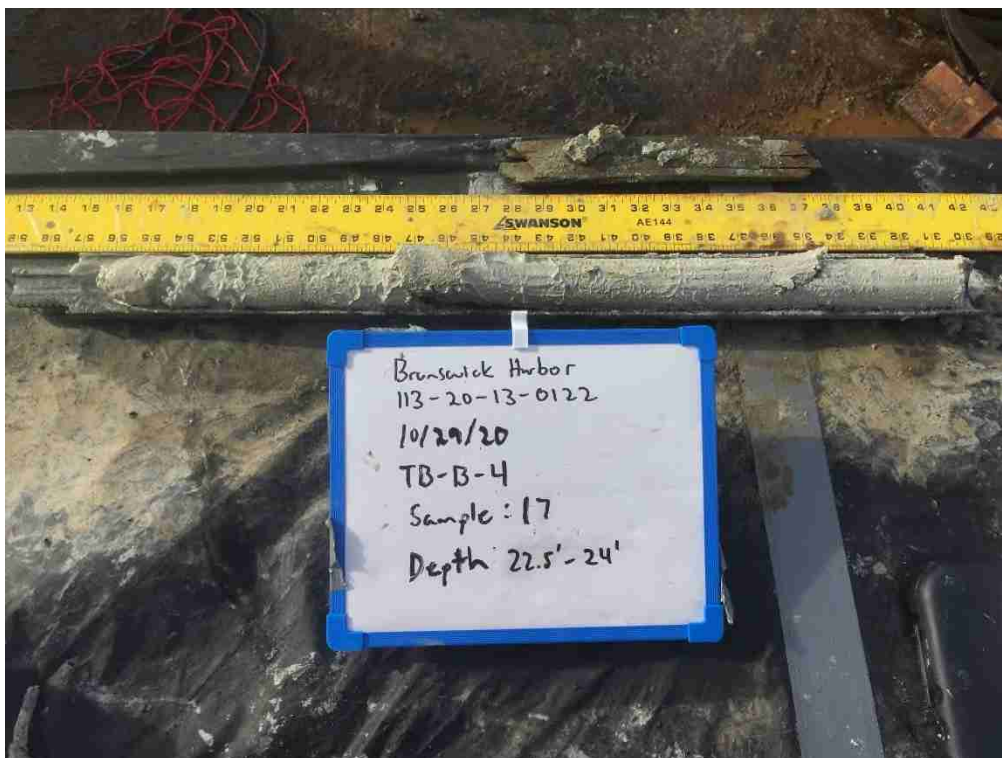 13 14 15 16 17 18 19 20 21 22 23 24 25 26 27 28 29 30 31 32 33 34 35 36 37 38 39 40 41 42
SWANSON AE144
Brunswick Harbor
113-20-13-0122
10/29/20
TB-B-4
Sample: 17
Depth 22.5'-24'